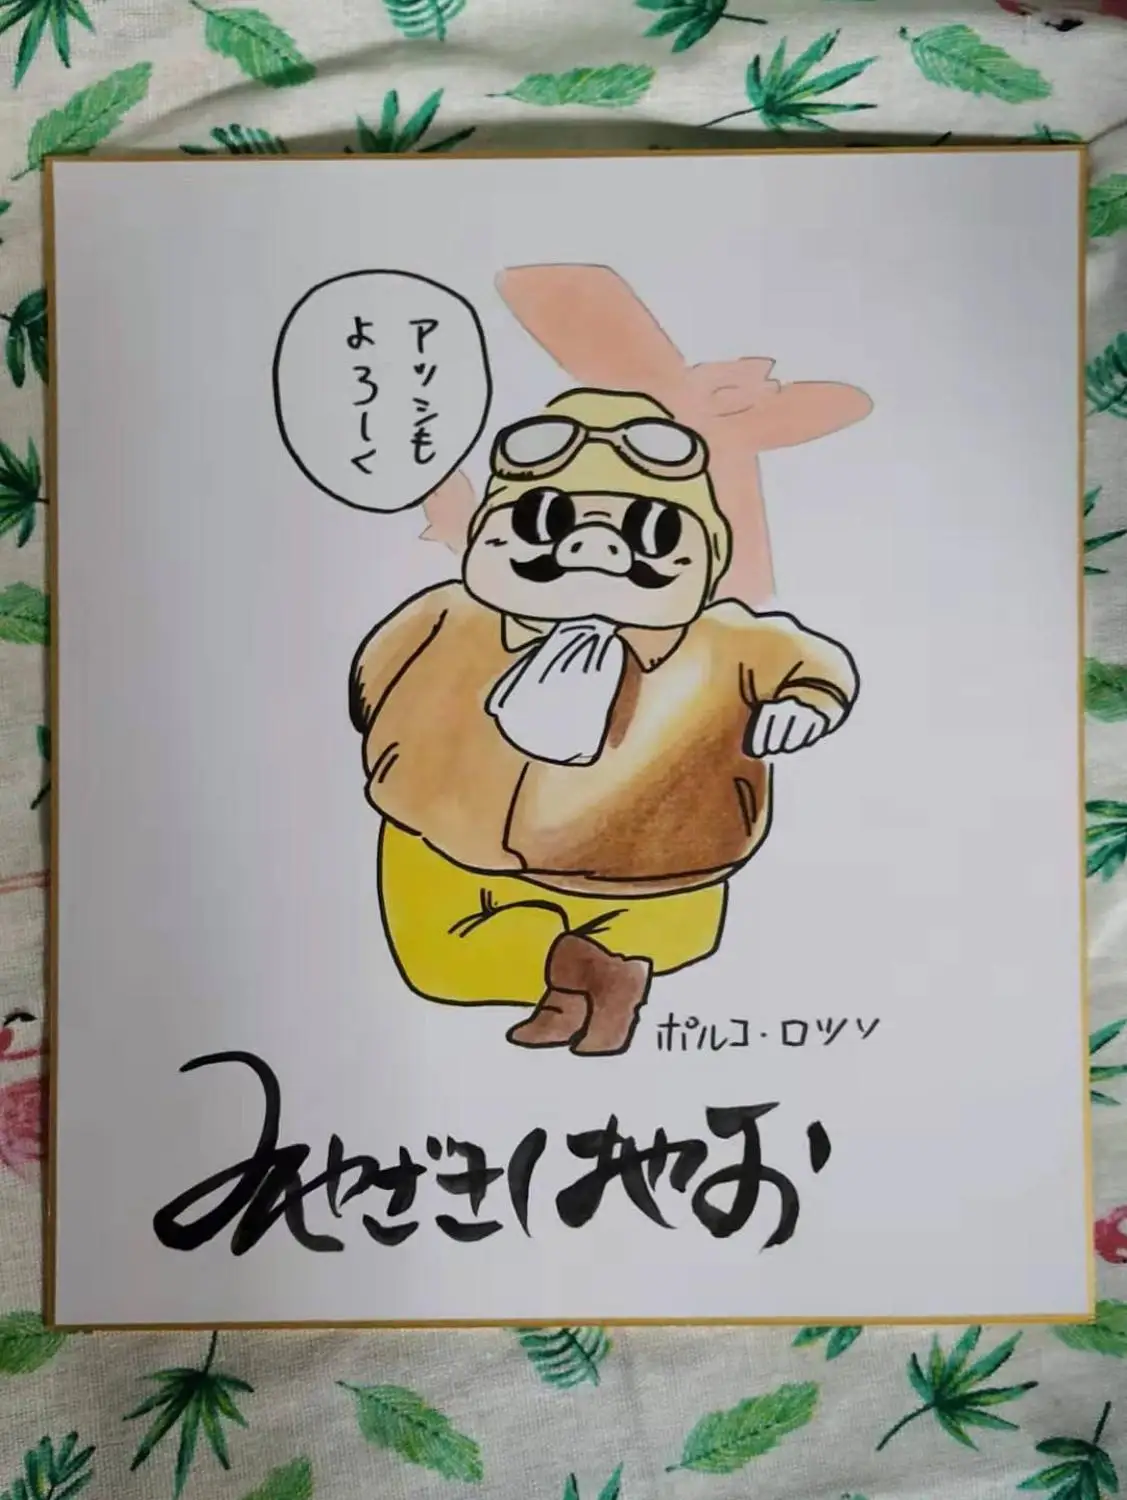 アッシも
よろーく
ポルコ・ロッソ
みやざきはやお